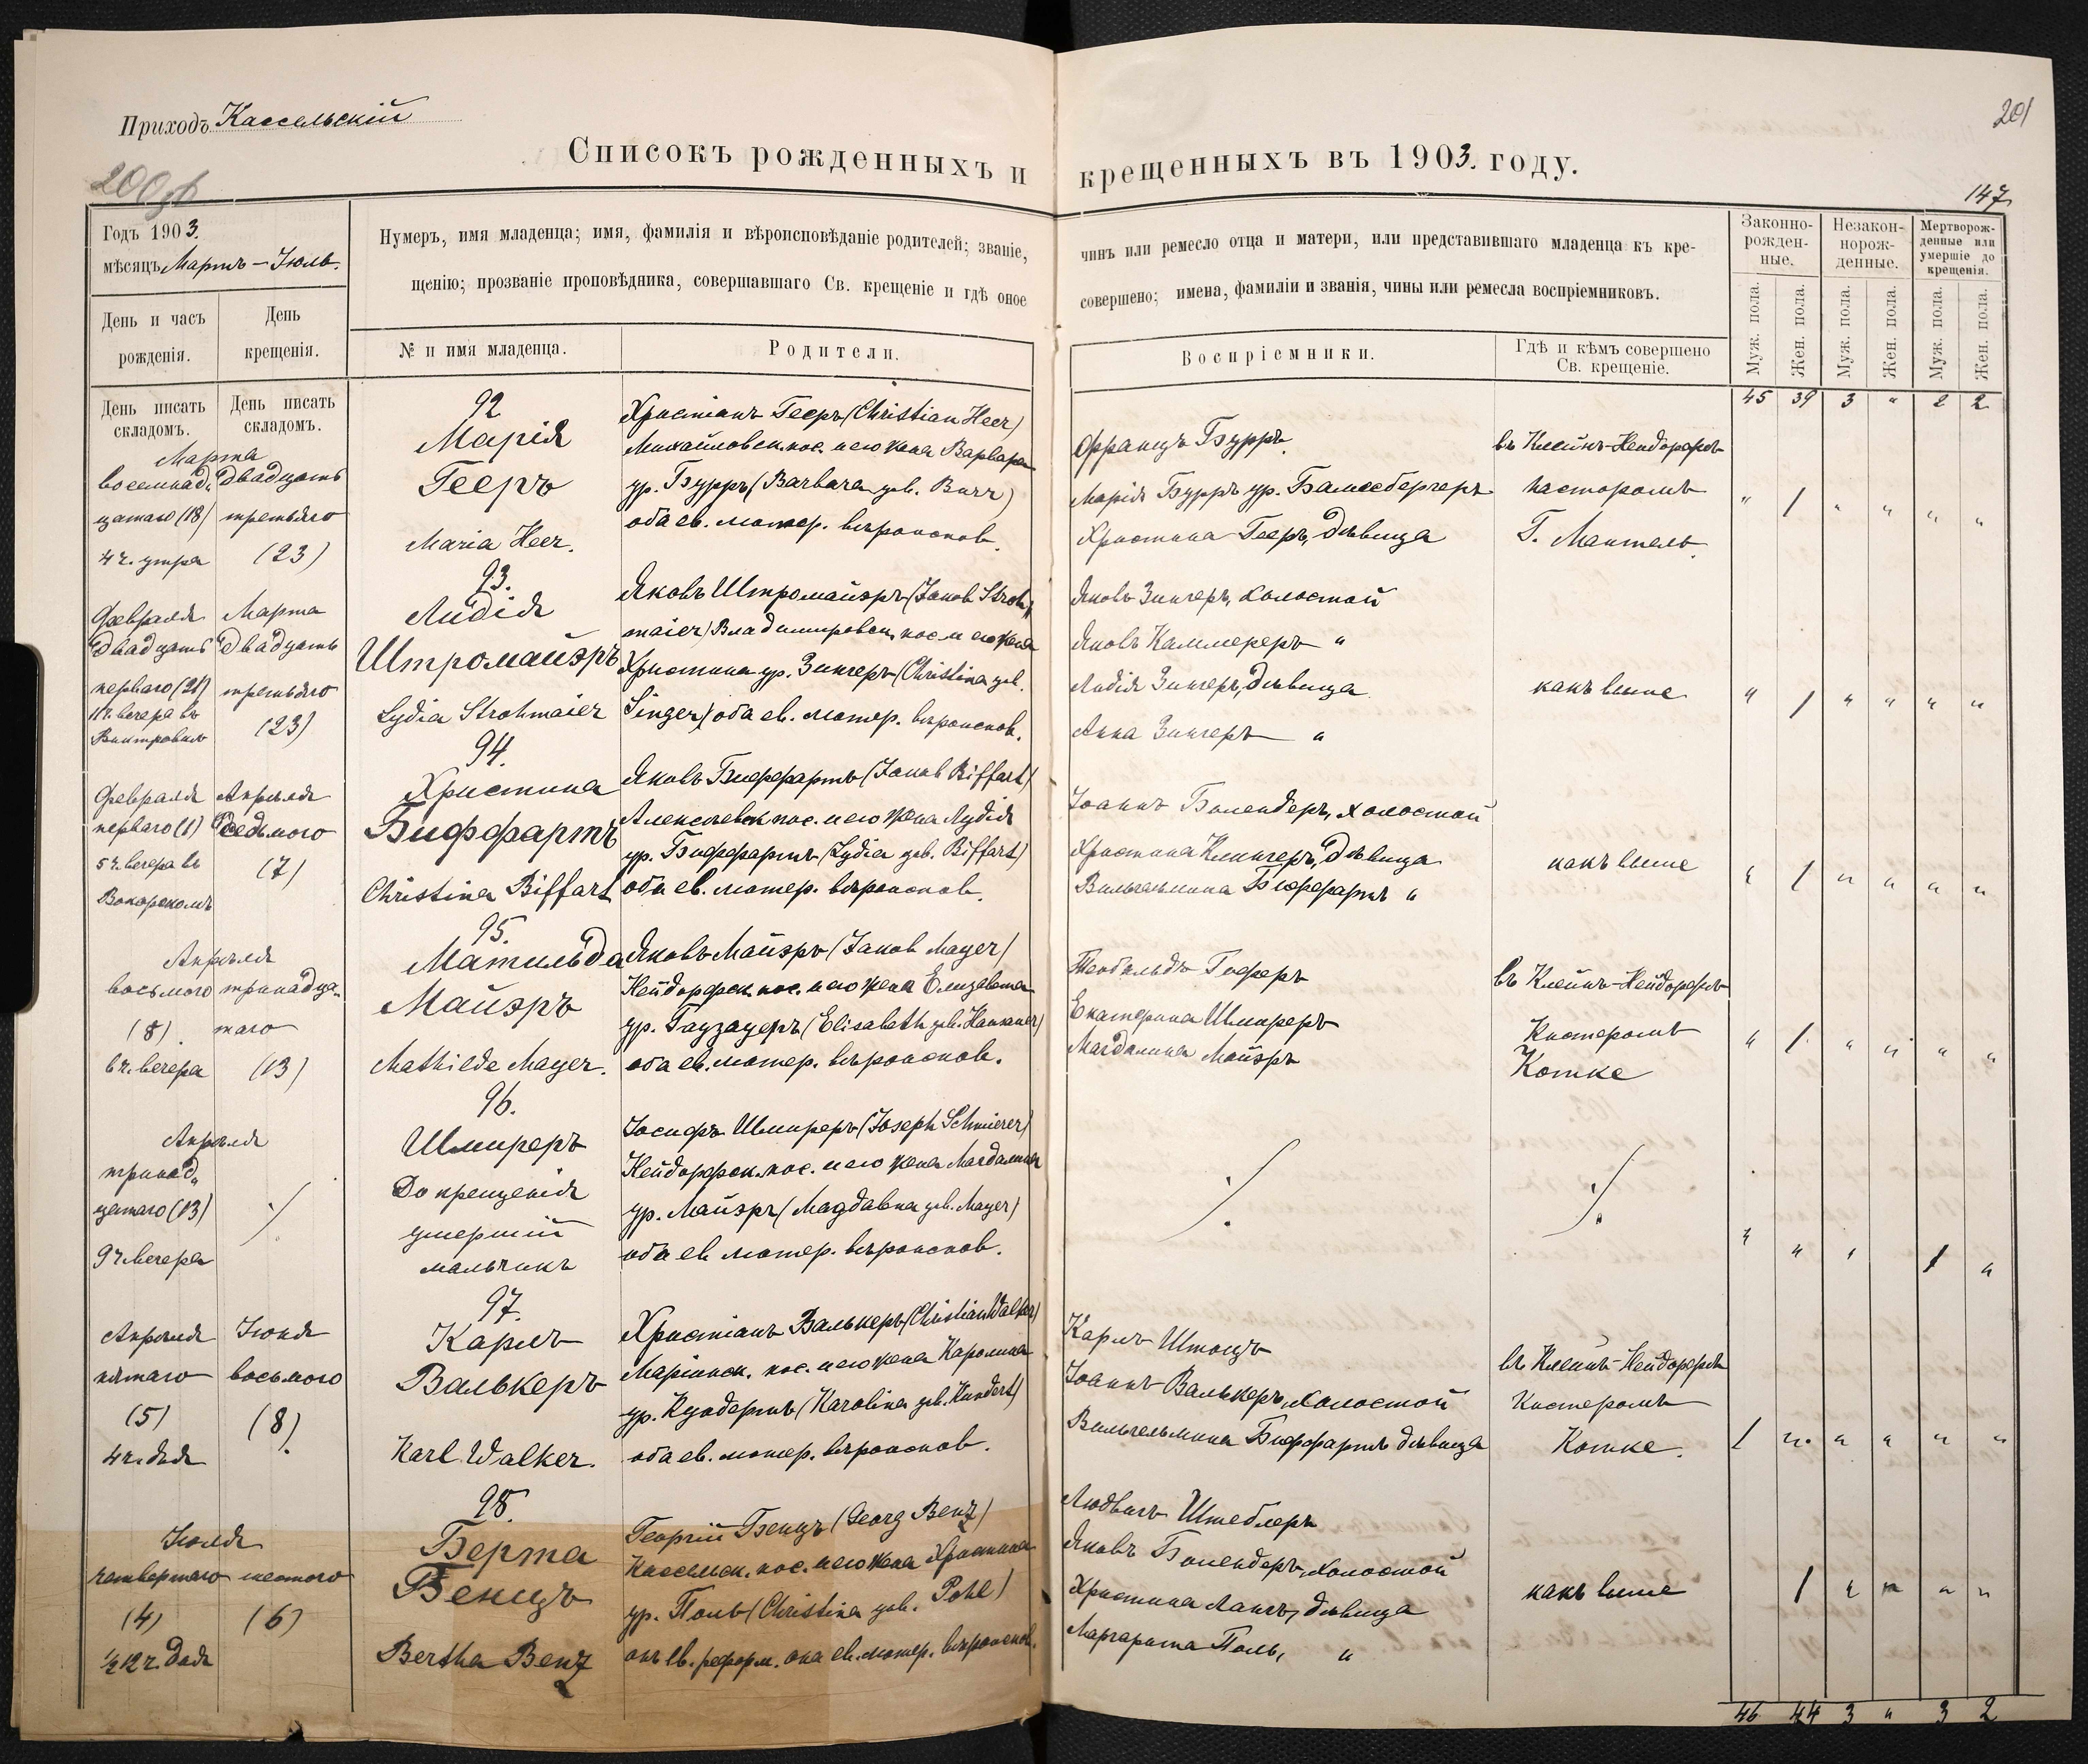 Приходъ Кассельскій
201
Списокъ рожденныхъ и крещенныхъ въ 1903. году.
200об
147
Годъ 1903.
мѣсяцъ Мартъ – Іюль.
Нумеръ, имя младенца; имя, фамилія и вѣроисповѣданіе родителей; званіе,
щенію; прозваніе проповѣдника, совершавшаго Св. крещеніе и гдѣ оное
чинъ или ремесло отца и матери, или представившаго младенца къ кре-
совершено; имена, фамиліи и званія, чины или ремесла воспріемниковъ.
Законно-
рожден-
ные.
Незакон-
норож-
денные.
Мертворож-
денные или
умершіе до
крещенія.
День и часъ
рожденія.
День
крещенія.
№ и имя младенца.
Родители.
Воспріемники.
Гдѣ и кѣмъ совершено
Св. крещеніе.
Муж. пола.
Жен. пола.
Муж. пола.
Жен. пола.
Муж. пола.
Жен. пола.
День писать
складомъ.
День писать
складомъ.
45 39 3 " 2 2
Марта
восемнад„
цатаго (18)
4 ч. утра
двадцать
третьяго
(23)
92
Марія
Гееръ
Maria Heer.
Христіанъ Гееръ (Christian Heer)
Михайловск. пос. и его жена Варвара
ур. Бурръ (Barbara geb. Burr)
оба ев. лютер. вѣроисков.
Францъ Бурръ
Марія Бурръ ур. Бамесбергеръ
Христина Гееръ, дѣвица
въ Клейнъ-Нейдорфѣ
пасторомъ
Г. Мантель.
" 1 " " " "
Февраля
двадцать
перваго (21)
11 ч. вечера въ
Марта
двадцать
третьяго
(23)
93.
Лидія
Штромайэръ
Lydia Strohmaier
Яковъ Штромайэръ (Jakob Stroh„
maier) Владимировск. пос. и его жена
Христина ур. Зингеръ (Christina geb.
Singer) оба ев. лютер. вѣроисков.
Яковъ Зингеръ, холостой
Яковъ Каммереръ "
Лидія Зингеръ, дѣвица
Анна Зингеръ "
какъ выше
" 1 " " " "
Февраля
перваго (1)
5 ч. вечера въ
Апрѣля
седьмого
(7)
94.
Христина
Биффартъ
Christina Biffart
Яковъ Биффартъ (Jakob Biffart)
Алексѣевск. пос. и его жена Лудія
ур. Биффартъ (Lydia geb. Biffart)
оба ев. лютер. вѣроисков.
Іоаннъ Болендеръ, холостой
Христина Клингеръ, дѣвица
Вильгельмина Биффартъ "
какъ выше
" 1 " " " "
Апрѣля
восьмого
(8).
6 ч. вечера
тринадца„
таго
(13)
95.
Матильда
Майэръ
Mathilde Mayer.
Яковъ Майэръ (Jakob Mayer)
Нейдорфск. пос. и его жена Елизавета
ур. Гаузауеръ (Elisabeth geb. Hausauer)
оба ев. лютер. вѣроисков.
Теобальдъ Гоферъ
Екатерина Шмиреръ
Магдалина Майэръ
въ Клейнъ-Нейдорфѣ
Кистеромъ
Котке
" 1. " " " "
Апрѣля
тринад„
цатаго (13)
9 ч. вечера
96.
Шмиреръ
До крещенія
умершій
мальчикъ
Іосифъ Шмиреръ (Joseph Schmierer)
Нейдорфск. пос. и его жена Магдалина
ур. Майэръ (Магдавна geb. Mayer)
оба ев. лютер. вѣроисков.
" " " 1 "
Апрѣля
пятаго
(5)
4 ч. дня
Іюня
восьмого
(8).
97.
Карлъ
Валькеръ
Karl Walker.
Христіанъ Валькеръ (Christian Walker)
Маріинск. пос. и его жена Каролина
ур. Кундертъ (Karolina geb. Kundert)
оба ев. лютер. вѣроисков.
Карлъ Штоцъ
Іоаннъ Валькеръ, холостой
Вильгельмина Биффартъ дѣвица
въ Клейнъ-Нейдорфѣ
Кистеромъ
Котке.
1 " " " " "
Іюля
четвертаго
(4)
½ 12 ч. дня
шестого
(6)
98.
Берта
Бенцъ
Bertha Benz
Георгій Бенцъ (Georg Benz)
Кассельск. пос. и его жена Христина
ур. Поль (Christina geb. Pohl)
онъ ев. реформ. она ев. лютер. вѣроисков.
Людвигъ Штеблеръ
Яковъ Болендеръ, холостой
Христина Лангъ, дѣвица
Маргарита Поль, "
какъ выше
1 " " " "
46 44 3 " 3 2